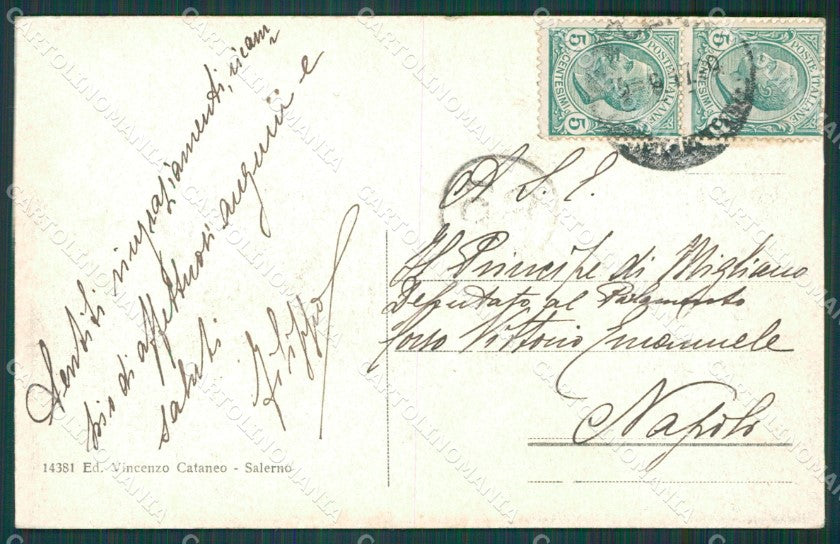 Sentiti ringraziamenti, ricam
bio di affettuosi auguri e
saluti
Filippo
14381 Ed. Vincenzo Cataneo - Salerno
A S. E.
Il Principe di Migliano
Deputato al Parlamento
Corso Vittorio Emanuele
Napoli
POSTE ITALIANE
CENTESIMI
5
5
POSTE ITALIANE
CENTESIMI
5
5
CARTOLINOMANIA